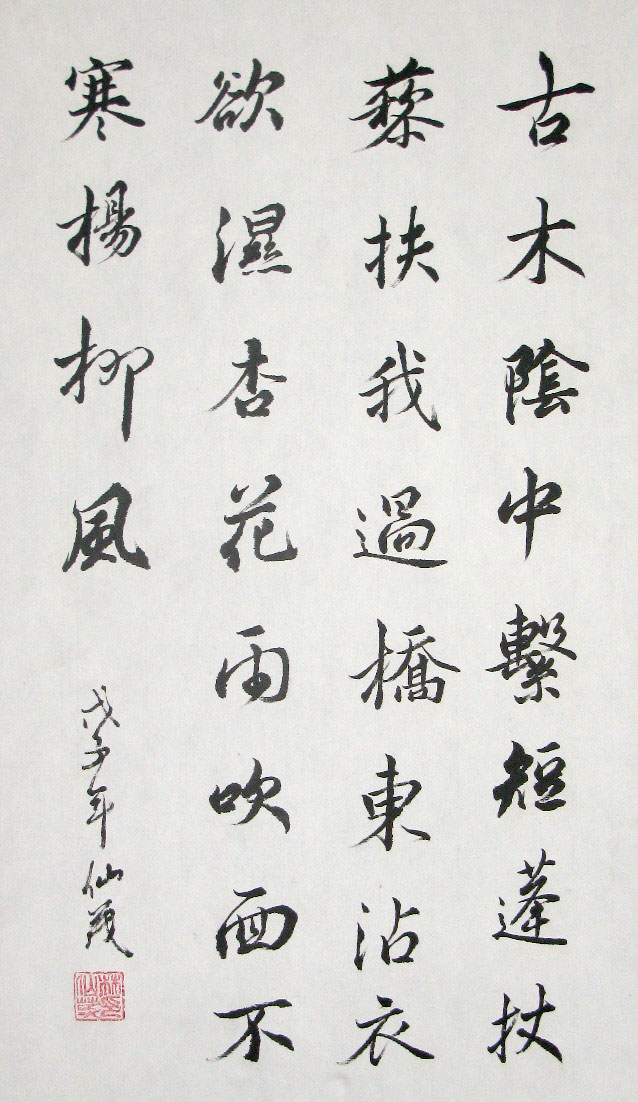 古木陰中繫短蓬杖
藜扶我過橋東沾衣
欲濕杏花雨吹面不
寒楊柳風
戊子年仙茂